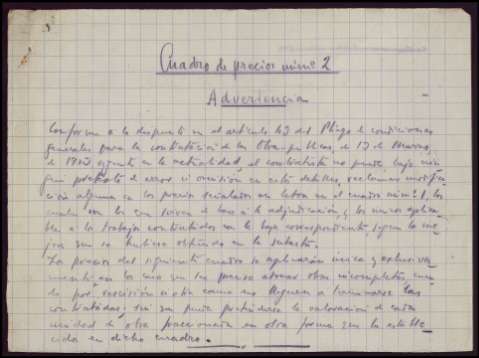 Cuadro de precios núm. 2
Advertencia
Conforme a lo dispuesto en el artículo 43 del Pliego de condiciones
generales para la contratación de las Obras públicas, de 13 de Marzo
de 1903, vigente en la actualidad, el contratista no puede bajo nin
gún pretexto de error u omisión en este detalle, reclamar modifica
ción alguna en los precios señalados en letra en el cuadro núm. 1, los
cuales son los que sirven de base a la adjudicación, y los únicos aplica
bles a los trabajos contratados con la baja correspondiente, según la me
jora que se hubiese obtenido en la subasta.
Los precios del siguiente cuadro se aplicarán única y exclusiva
mente en los casos que sea preciso abonar obras incompletas, cuan
do por rescisión u otra causa no lleguen a terminarse las
contratadas; sin que pueda pretenderse la valoración de cada
unidad de obra fraccionada en otra forma que la estable
cida en dicho cuadro.